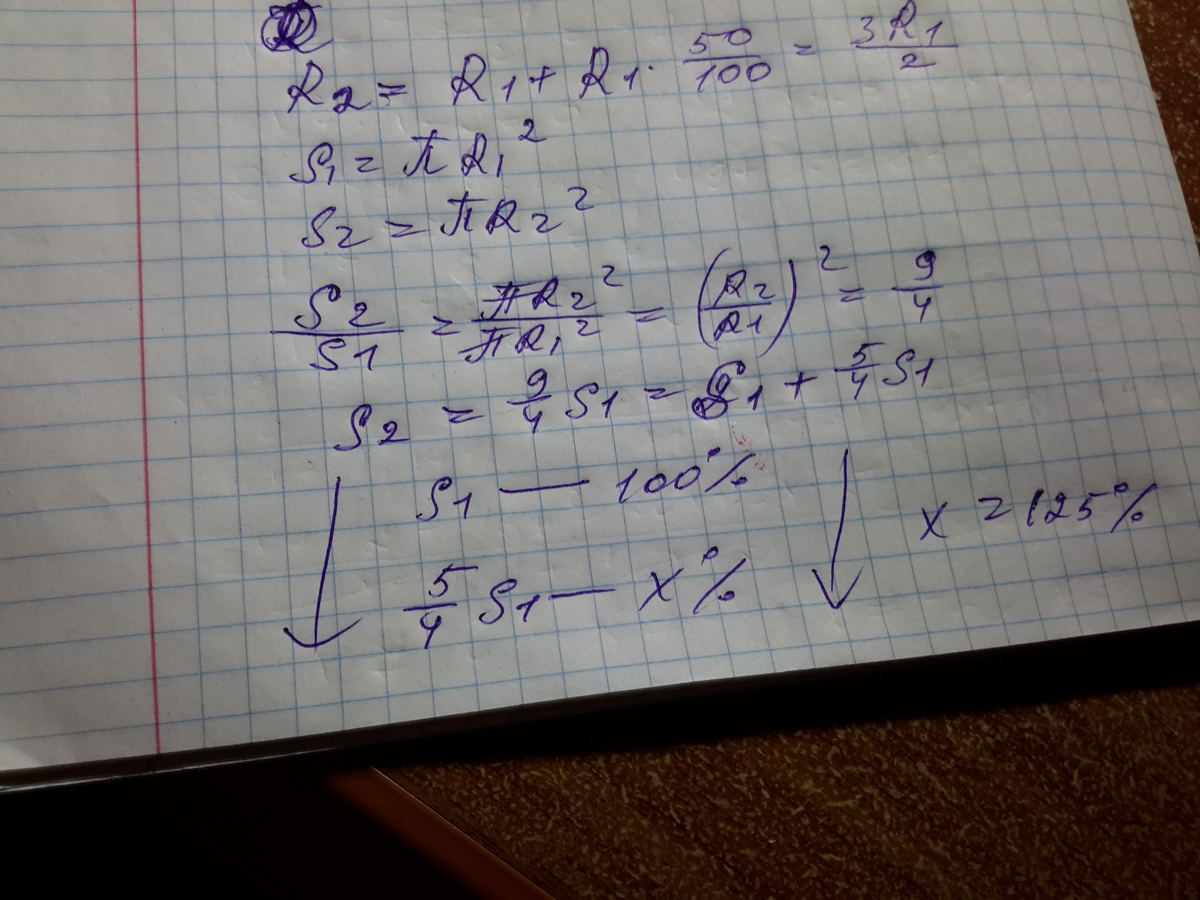 R2 = R1 + R1 · 50/100 = 3R1/2
S1 = πR1²
S2 = πR2²
S2/S1 = πR2²/πR1² = (R2/R1)² = 9/4
S2 = 9/4 S1 = S1 + 5/4 S1
S1 — 100%
x = 125%
5/4 S1 — x%